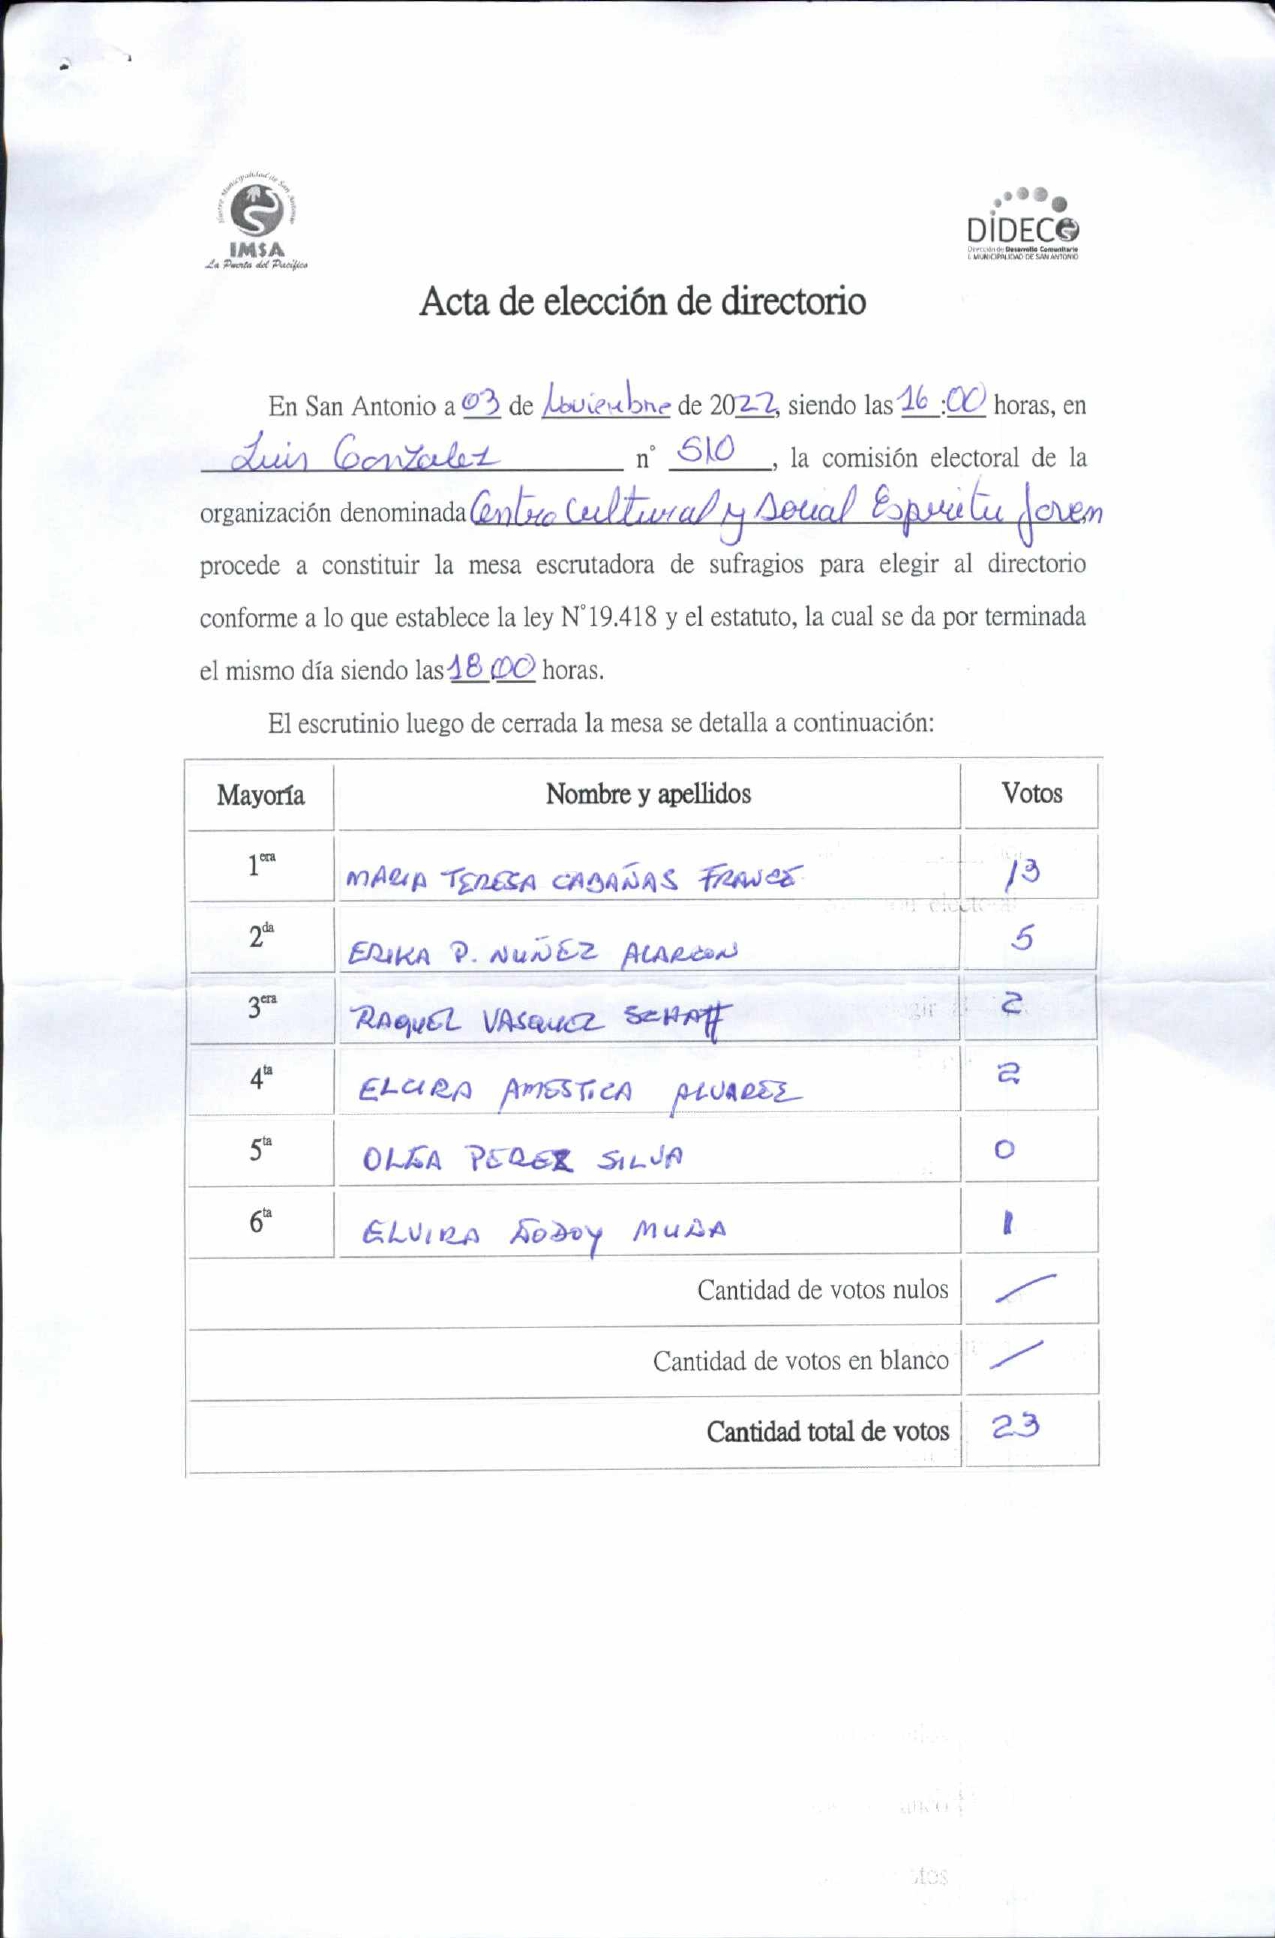 Ilustre Municipalidad de San Antonio
IMSA
La Puerta del Pacífico
DIDECO
Dirección de Desarrollo Comunitario
I. MUNICIPALIDAD DE SAN ANTONIO
Acta de elección de directorio
En San Antonio a 03 de Noviembre de 2022, siendo las 16:00 horas, en
Luis Gonzalez n° 510, la comisión electoral de la
organización denominada Centro Cultural y Social Espiritu Joven
procede a constituir la mesa escrutadora de sufragios para elegir al directorio
conforme a lo que establece la ley N°19.418 y el estatuto, la cual se da por terminada
el mismo día siendo las 18:00 horas.
El escrutinio luego de cerrada la mesa se detalla a continuación:
Mayoría Nombre y apellidos Votos
1era MARIA TERESA CABAÑAS FRANCÉ 13
2da ERIKA P. NUÑEZ ALARCON 5
3era RAQUEL VASQUEZ SCHAFF 2
4ta ELCIRA AMESTICA ALVAREZ 2
5ta OLGA PEREZ SILVA 0
6ta ELVIRA GODOY 1
Cantidad de votos nulos /
Cantidad de votos en blanco /
Cantidad total de votos 23